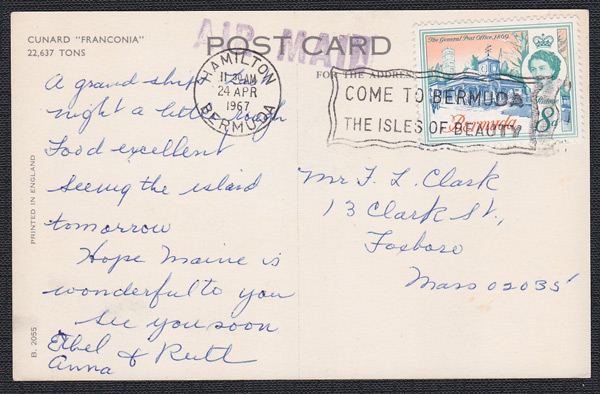 CUNARD "FRANCONIA"
22,637 TONS
AIR MAIL
POST CARD
FOR THE ADDRESS
HAMILTON
11 30 AM
24 APR
1967
BERMUDA
COME TO BERMUDA
THE ISLES OF BEAUTY
The General Post Office, 1869
Postage
8d
Bermuda
A grand ship
night a little rough
Food excellent
Seeing the island
tomorrow
Hope Maine is
wonderful to you
See you soon
Ethel & Ruth
Anna
Mr F. L. Clark
13 Clark St.,
Foxboro
Mass 02035
PRINTED IN ENGLAND
B. 2055